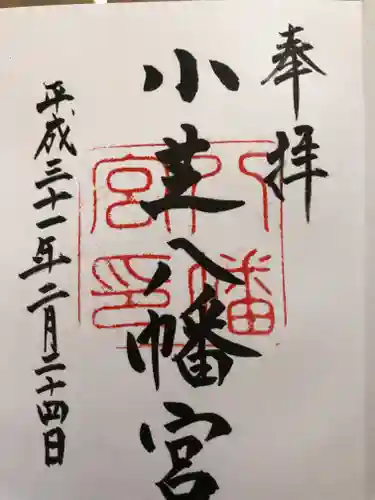 奉拝
小芝八幡宮
平成三十一年二月二十四日
八幡
宮印